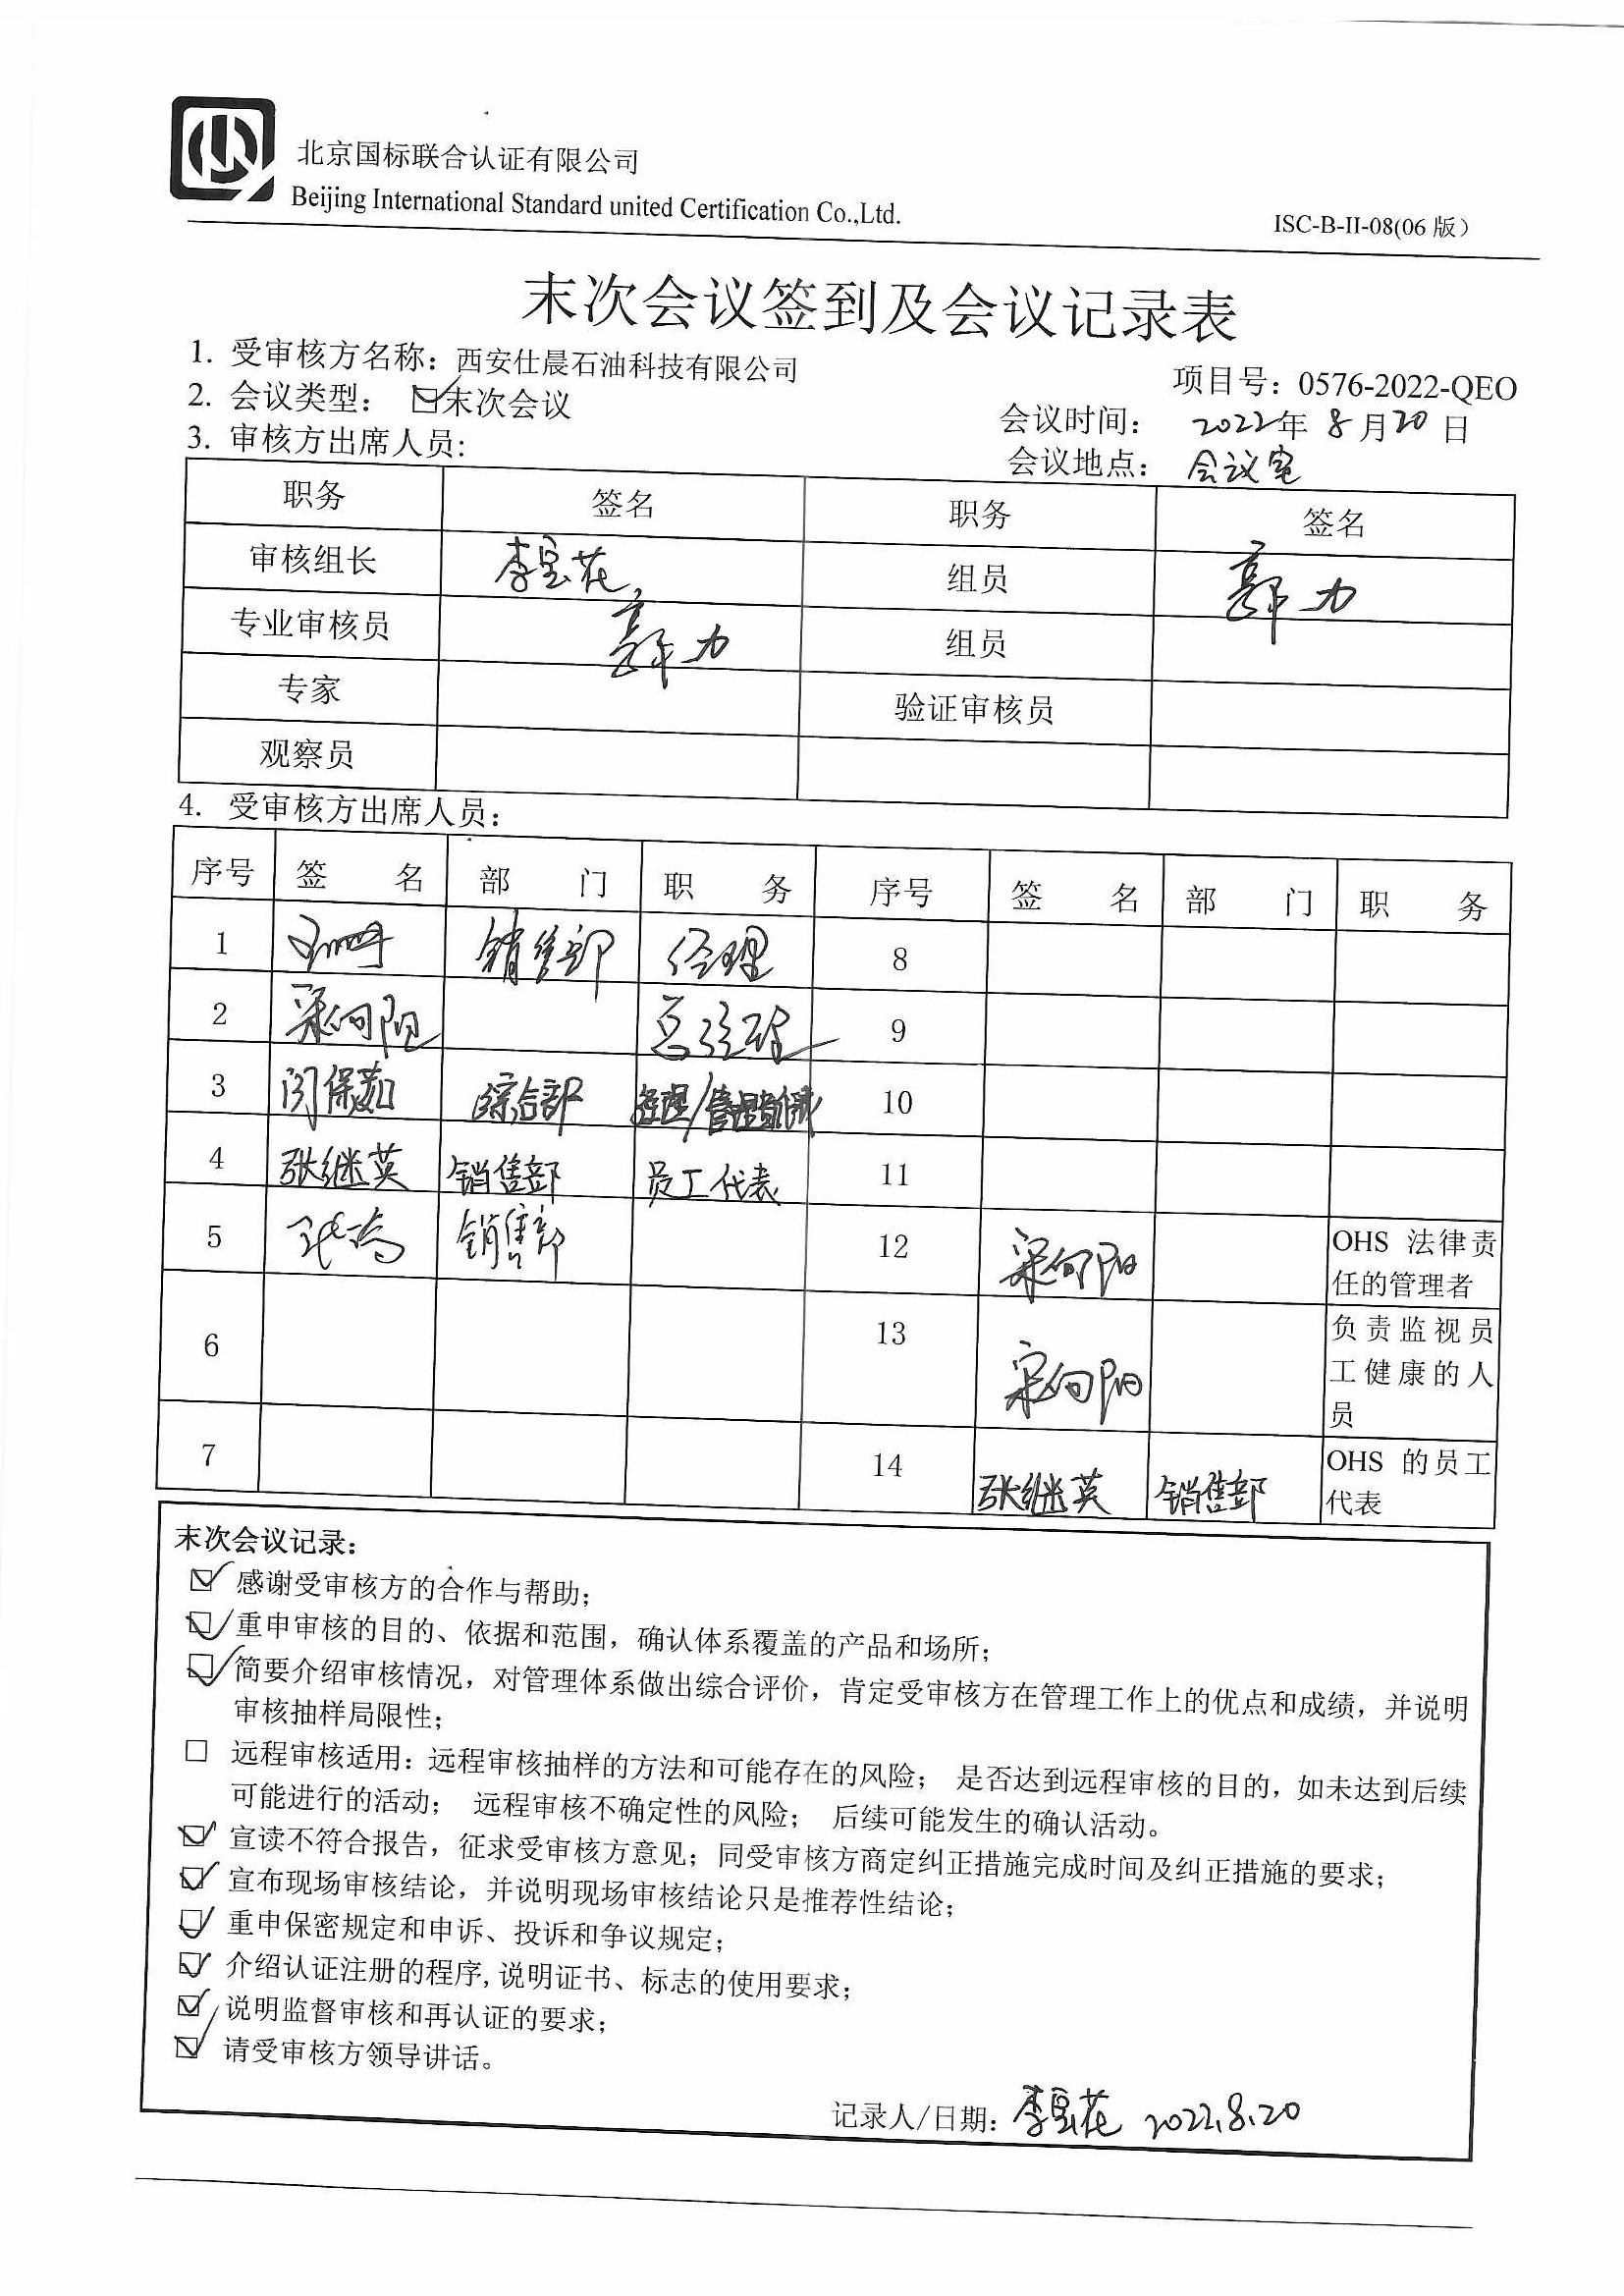 北京国标联合认证有限公司
Beijing International Standard united Certification Co.,Ltd.
ISC-B-II-08(06 版)
末次会议签到及会议记录表
1. 受审核方名称：西安仕晨石油科技有限公司 项目号：0576-2022-QEO
2. 会议类型： 末次会议 会议时间： 2022年 8月20日
3. 审核方出席人员: 会议地点： 会议室
职务 签名 职务 签名
审核组长 李宝花 组员 郭力
专业审核员 郭力 组员
专家 验证审核员
观察员
4. 受审核方出席人员：
序号 签 名 部 门 职 务 序号 签 名 部 门 职 务
1 销售部 经理 8
2 梁向阳 总经理 9
3 闵保茹 综合部 经理/管理者代表 10
4 张继英 销售部 员工代表 11
5 销售部 12 梁向阳 OHS 法律责任的管理者
6 13 梁向阳 负责监视员工健康的人员
7 14 张继英 销售部 OHS 的员工代表
末次会议记录：
☑ 感谢受审核方的合作与帮助；
☑ 重申审核的目的、依据和范围，确认体系覆盖的产品和场所；
☑ 简要介绍审核情况，对管理体系做出综合评价，肯定受审核方在管理工作上的优点和成绩，并说明
审核抽样局限性；
□ 远程审核适用：远程审核抽样的方法和可能存在的风险； 是否达到远程审核的目的，如未达到后续
可能进行的活动； 远程审核不确定性的风险； 后续可能发生的确认活动。
☑ 宣读不符合报告，征求受审核方意见；同受审核方商定纠正措施完成时间及纠正措施的要求；
☑ 宣布现场审核结论，并说明现场审核结论只是推荐性结论；
☑ 重申保密规定和申诉、投诉和争议规定；
☑ 介绍认证注册的程序,说明证书、标志的使用要求；
☑ 说明监督审核和再认证的要求；
☑ 请受审核方领导讲话。
记录人/日期：李宝花 2022.8.20